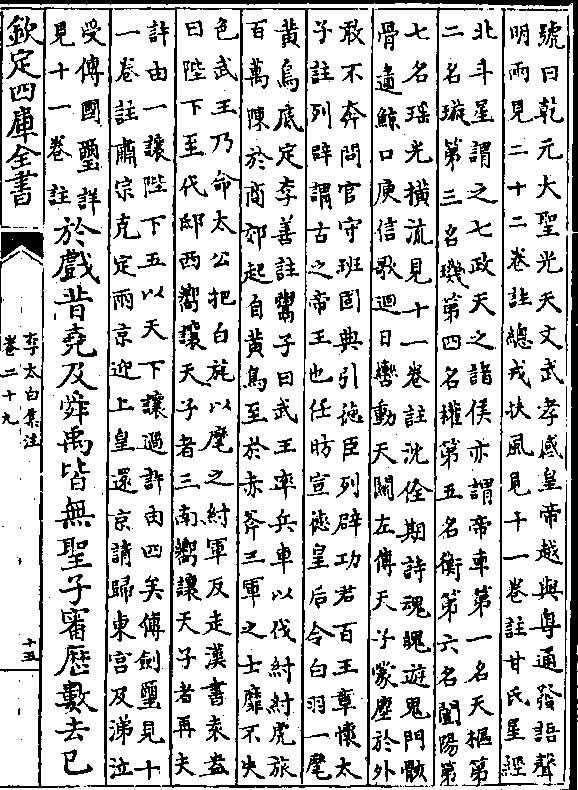 號曰乾元大聖光天文武孝感皇帝越與粤通發語聲
明兩見二十二卷註總戎扶風見十一卷註甘氏星經
北斗星謂之七政天之諸侯亦謂帝車第一名天樞第
二名璇第三名璣第四名權第五名衡第六名闓陽第
七名瑶光横流見十一卷註沈佺期詩魂魄遊鬼門骸
骨遺鯨口庾信歌迴日轡動天關左傳天子蒙塵於外
敢不奔問官守班固典引施臣列辟功若百王章懷太
子註列辟謂古之帝王也任昉宣德皇后令白羽一麾
黄鳥底定李善註鬻子曰武王率兵車以伐紂紂虎旅
百萬陳於商郊起自黄鳥至於赤斧三軍之士靡不失
色武王乃命太公把白旄以麾之紂軍反走漢書袁盎
曰陛下至代邸西嚮讓天子者三南嚮讓天子者再夫
許由一讓陛下五以天下讓過許由四矣傳劍璽見十
一卷註肅宗克定兩京迎上皇還京請歸東宫及涕泣
受傳國璽詳
見十一卷註
於戲昔堯及舜禹皆無聖子審厯數去已
欽定四庫全書
李太白集注
卷二十九
十五